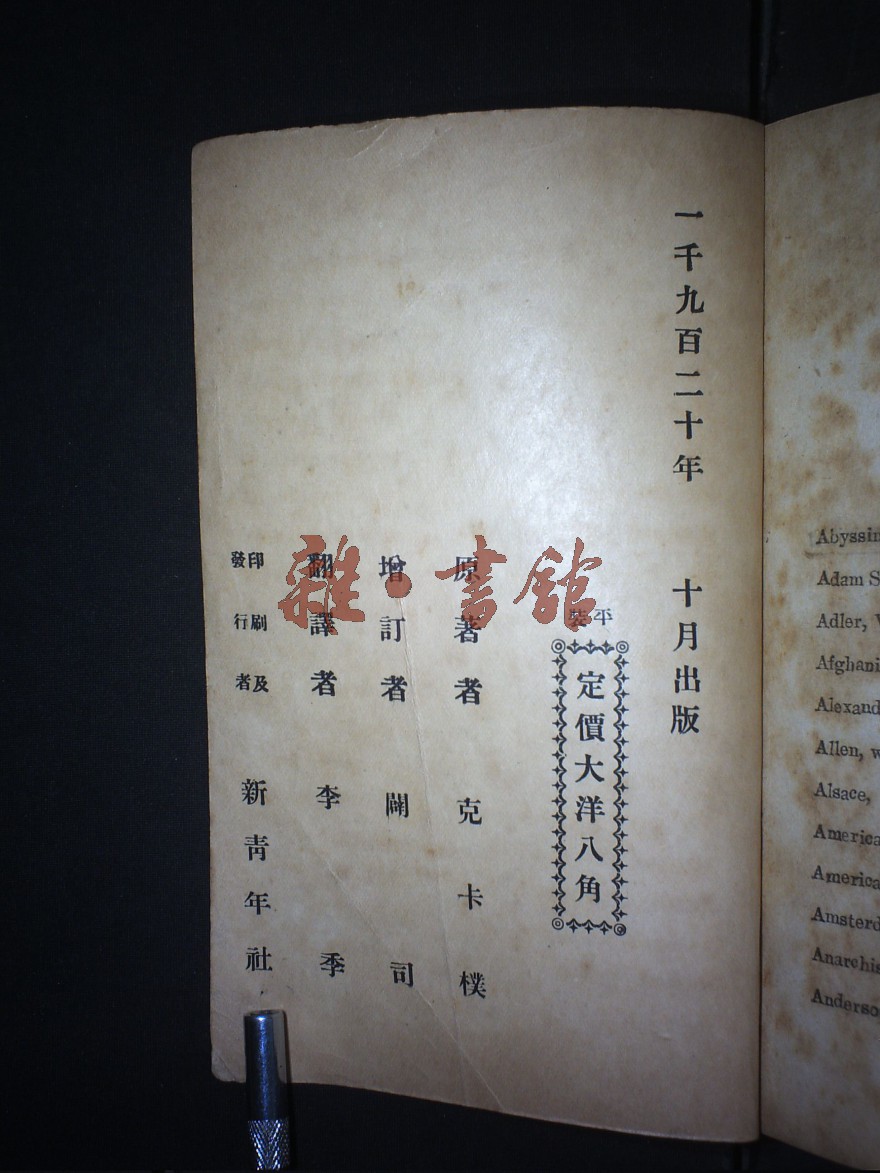 一千九百二十年 十月出版
平裝
定價大洋八角
原著者 克卡樸
增訂者 闢司
翻譯者 李季
印刷及
發行者
新青年社
雜·書館
Adam S
Adler,
Alsace,